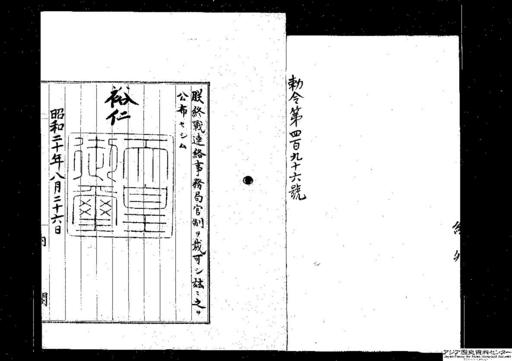 勅令第四百九十六號
朕終戰連絡事務局官制ヲ裁可シ玆ニ之ヲ
公布セシム
裕仁
天皇御璽
昭和二十年八月二十六日
内閣
アジア歴史資料センター